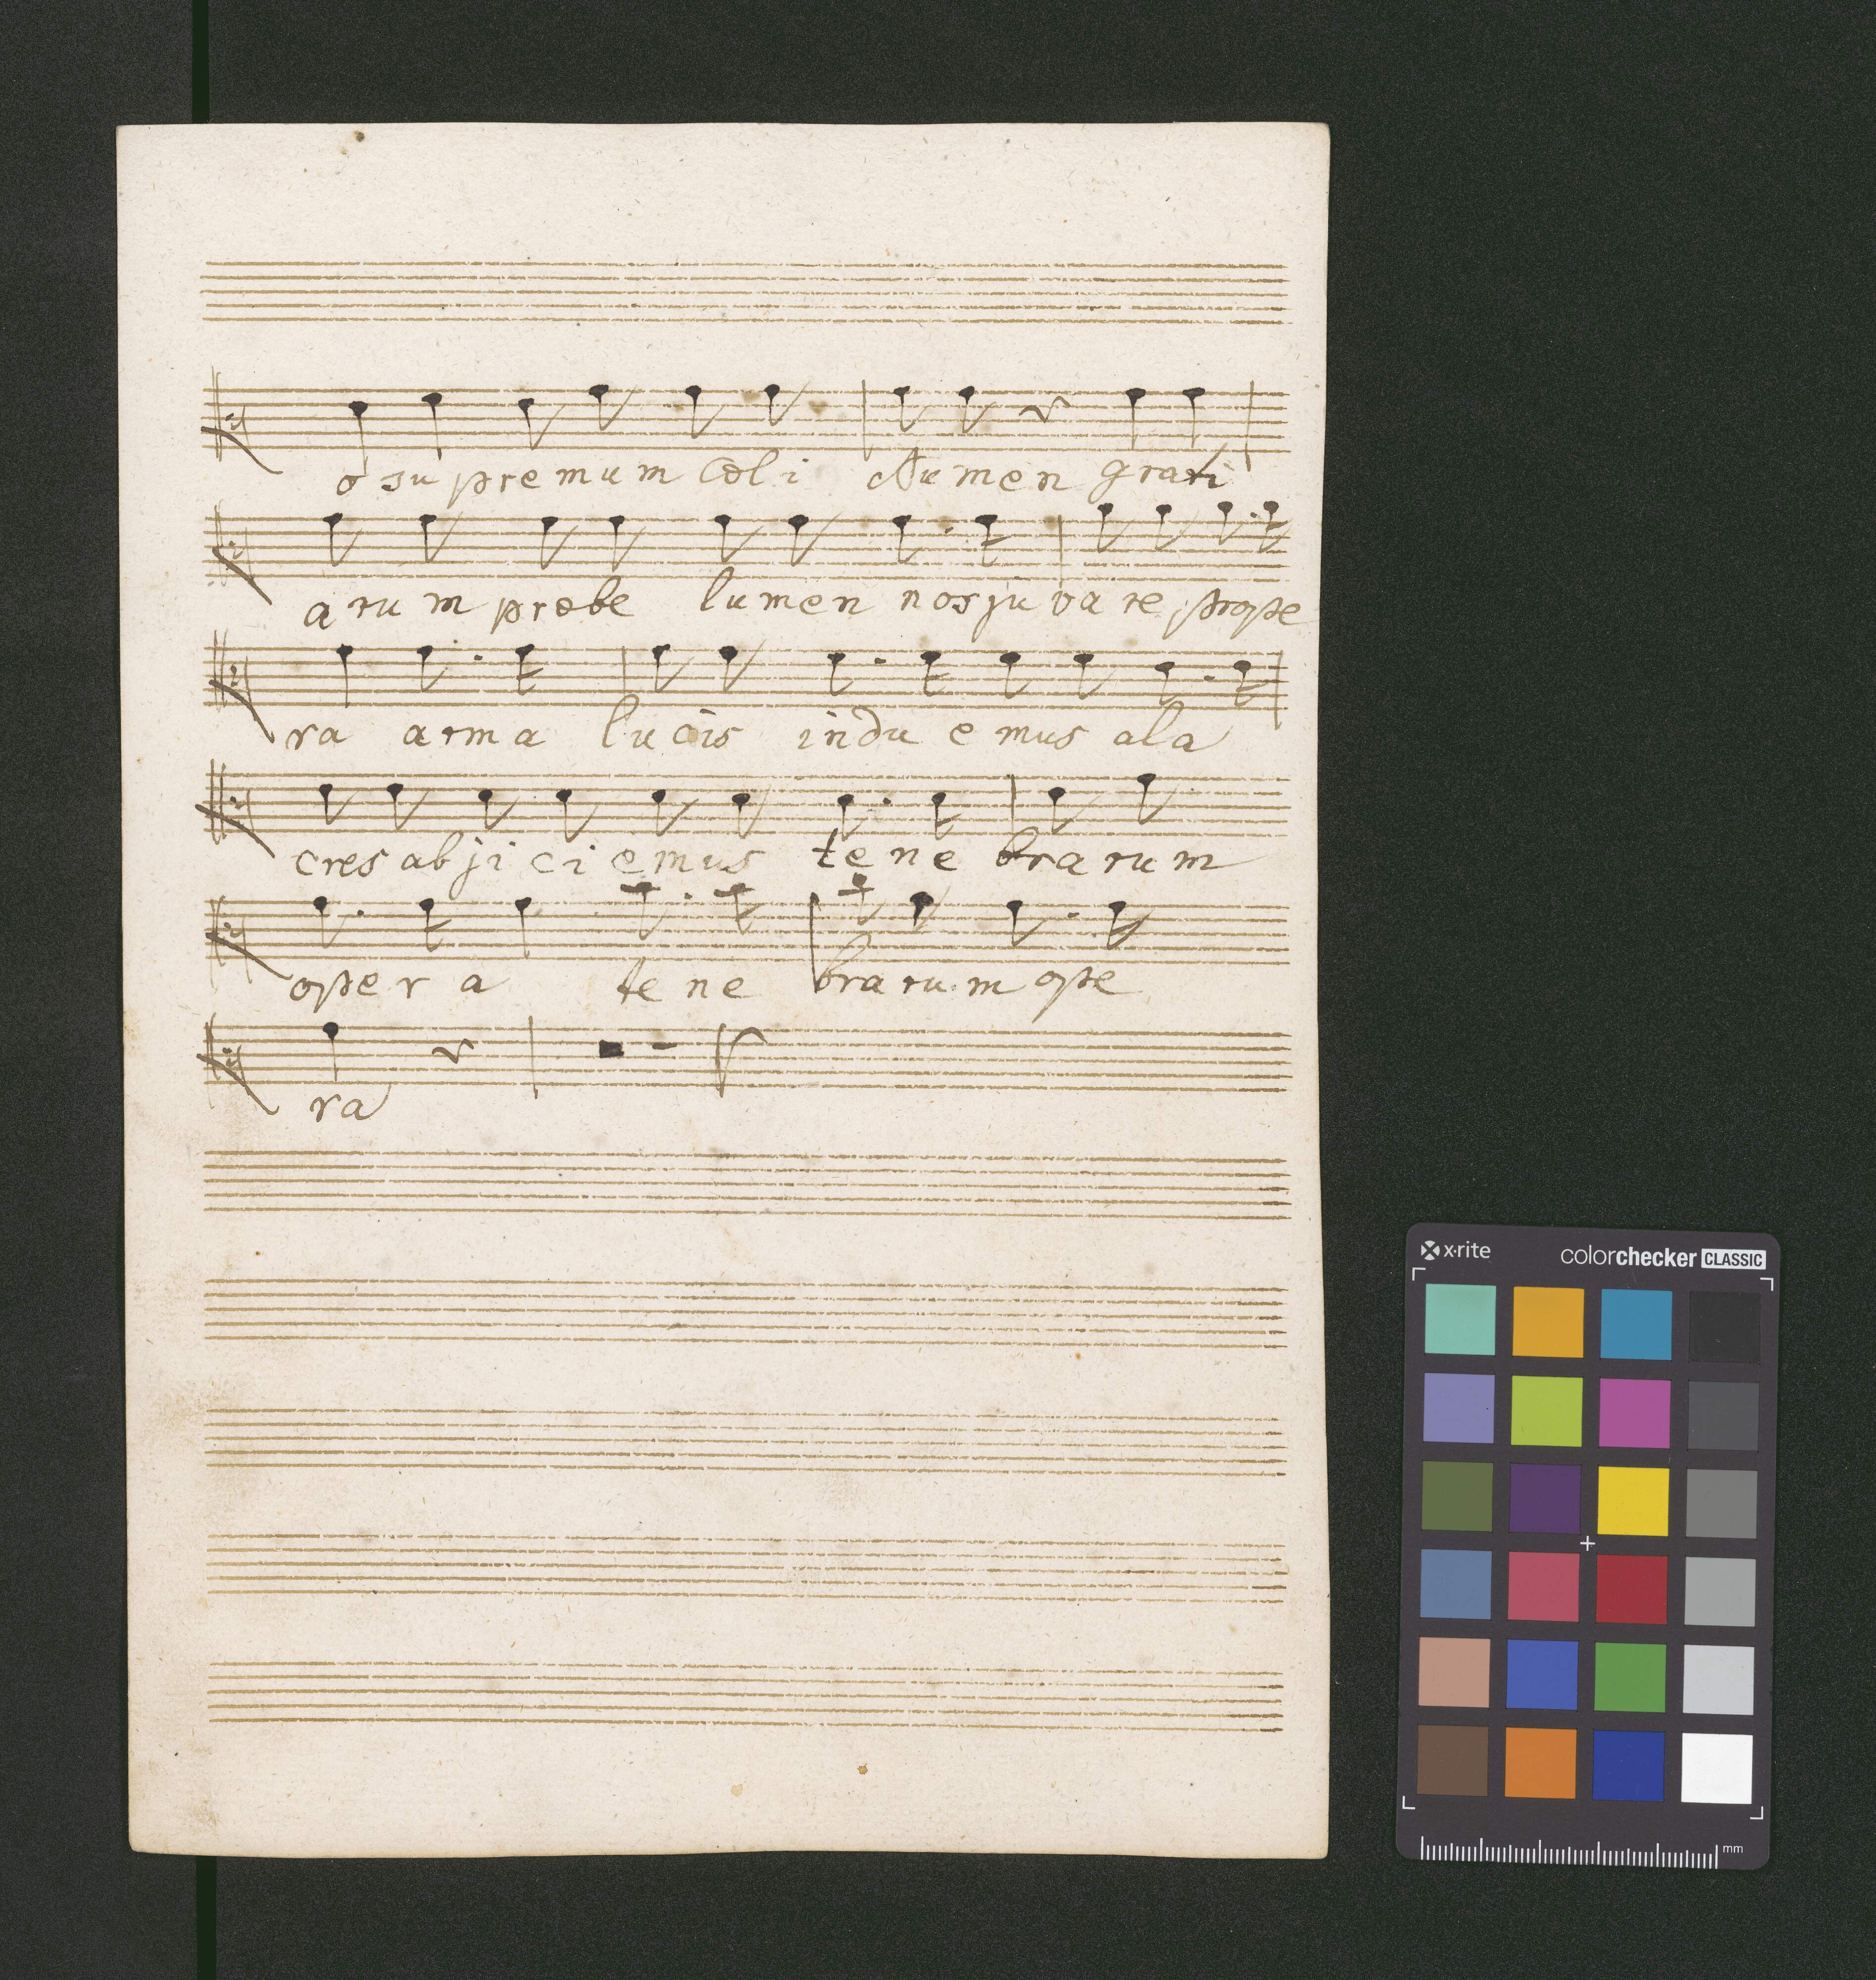 o su pre mum Cœl i Nu men grati
a ru m præbe lu men nos ju va re, prope
ra arma lucis indu e mus ala
cres ab ji ci emus te ne bra rum
ope r a te ne bra ru m ope
ra
x·rite colorchecker CLASSIC
mm